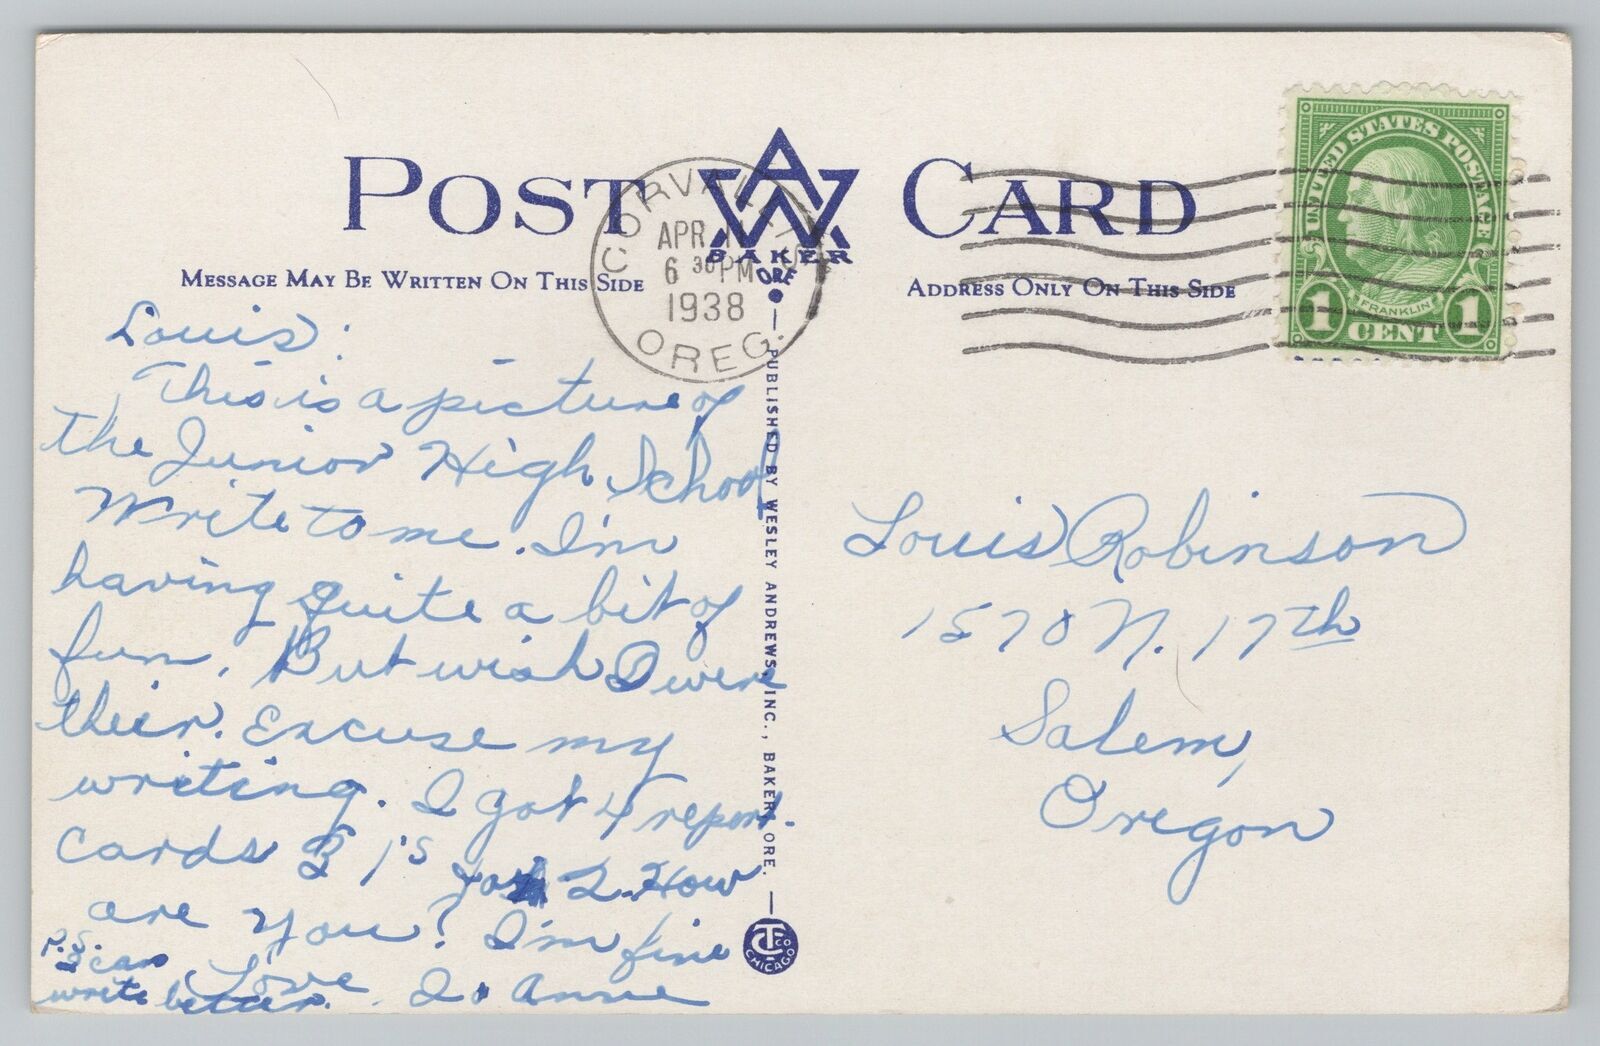 POST CARD
AW
BAKER
ORE
MESSAGE MAY BE WRITTEN ON THIS SIDE
ADDRESS ONLY ON THIS SIDE
CORVALLIS
APR
6 30 PM
1938
OREG.
UNITED STATES POSTAGE
FRANKLIN
1 CENT 1
Louis:
This is a picture of
the Junior High School
Write to me. I'm
having quite a bit of
fun. But wish I were
their. Excuse my
writing. I got 4 report-
cards 3 1's 2. How
are you? I'm fine
Love Anne
P.S.
I can
write better.
PUBLISHED BY WESLEY ANDREWS, INC., BAKER, ORE.
CT CO
CHICAGO
Louis Robinson
1570 N. 17th
Salem,
Oregon